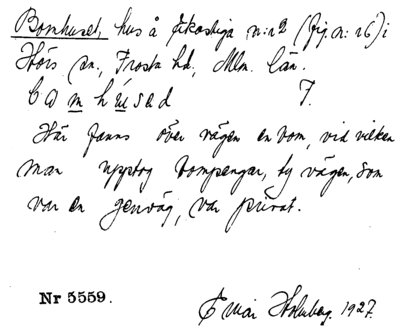 Bomhuset, hus å Ekastiga n:r 2 (fig. n: 16) i
Hörs sn, Frosta hd, Mlm. län.
7.
Här fanns över vägen en bom, vid vilken
man upptog bompengar, ty vägen, som
var en genväg, var privat.
Nr 5559. Holmberg. 1927.